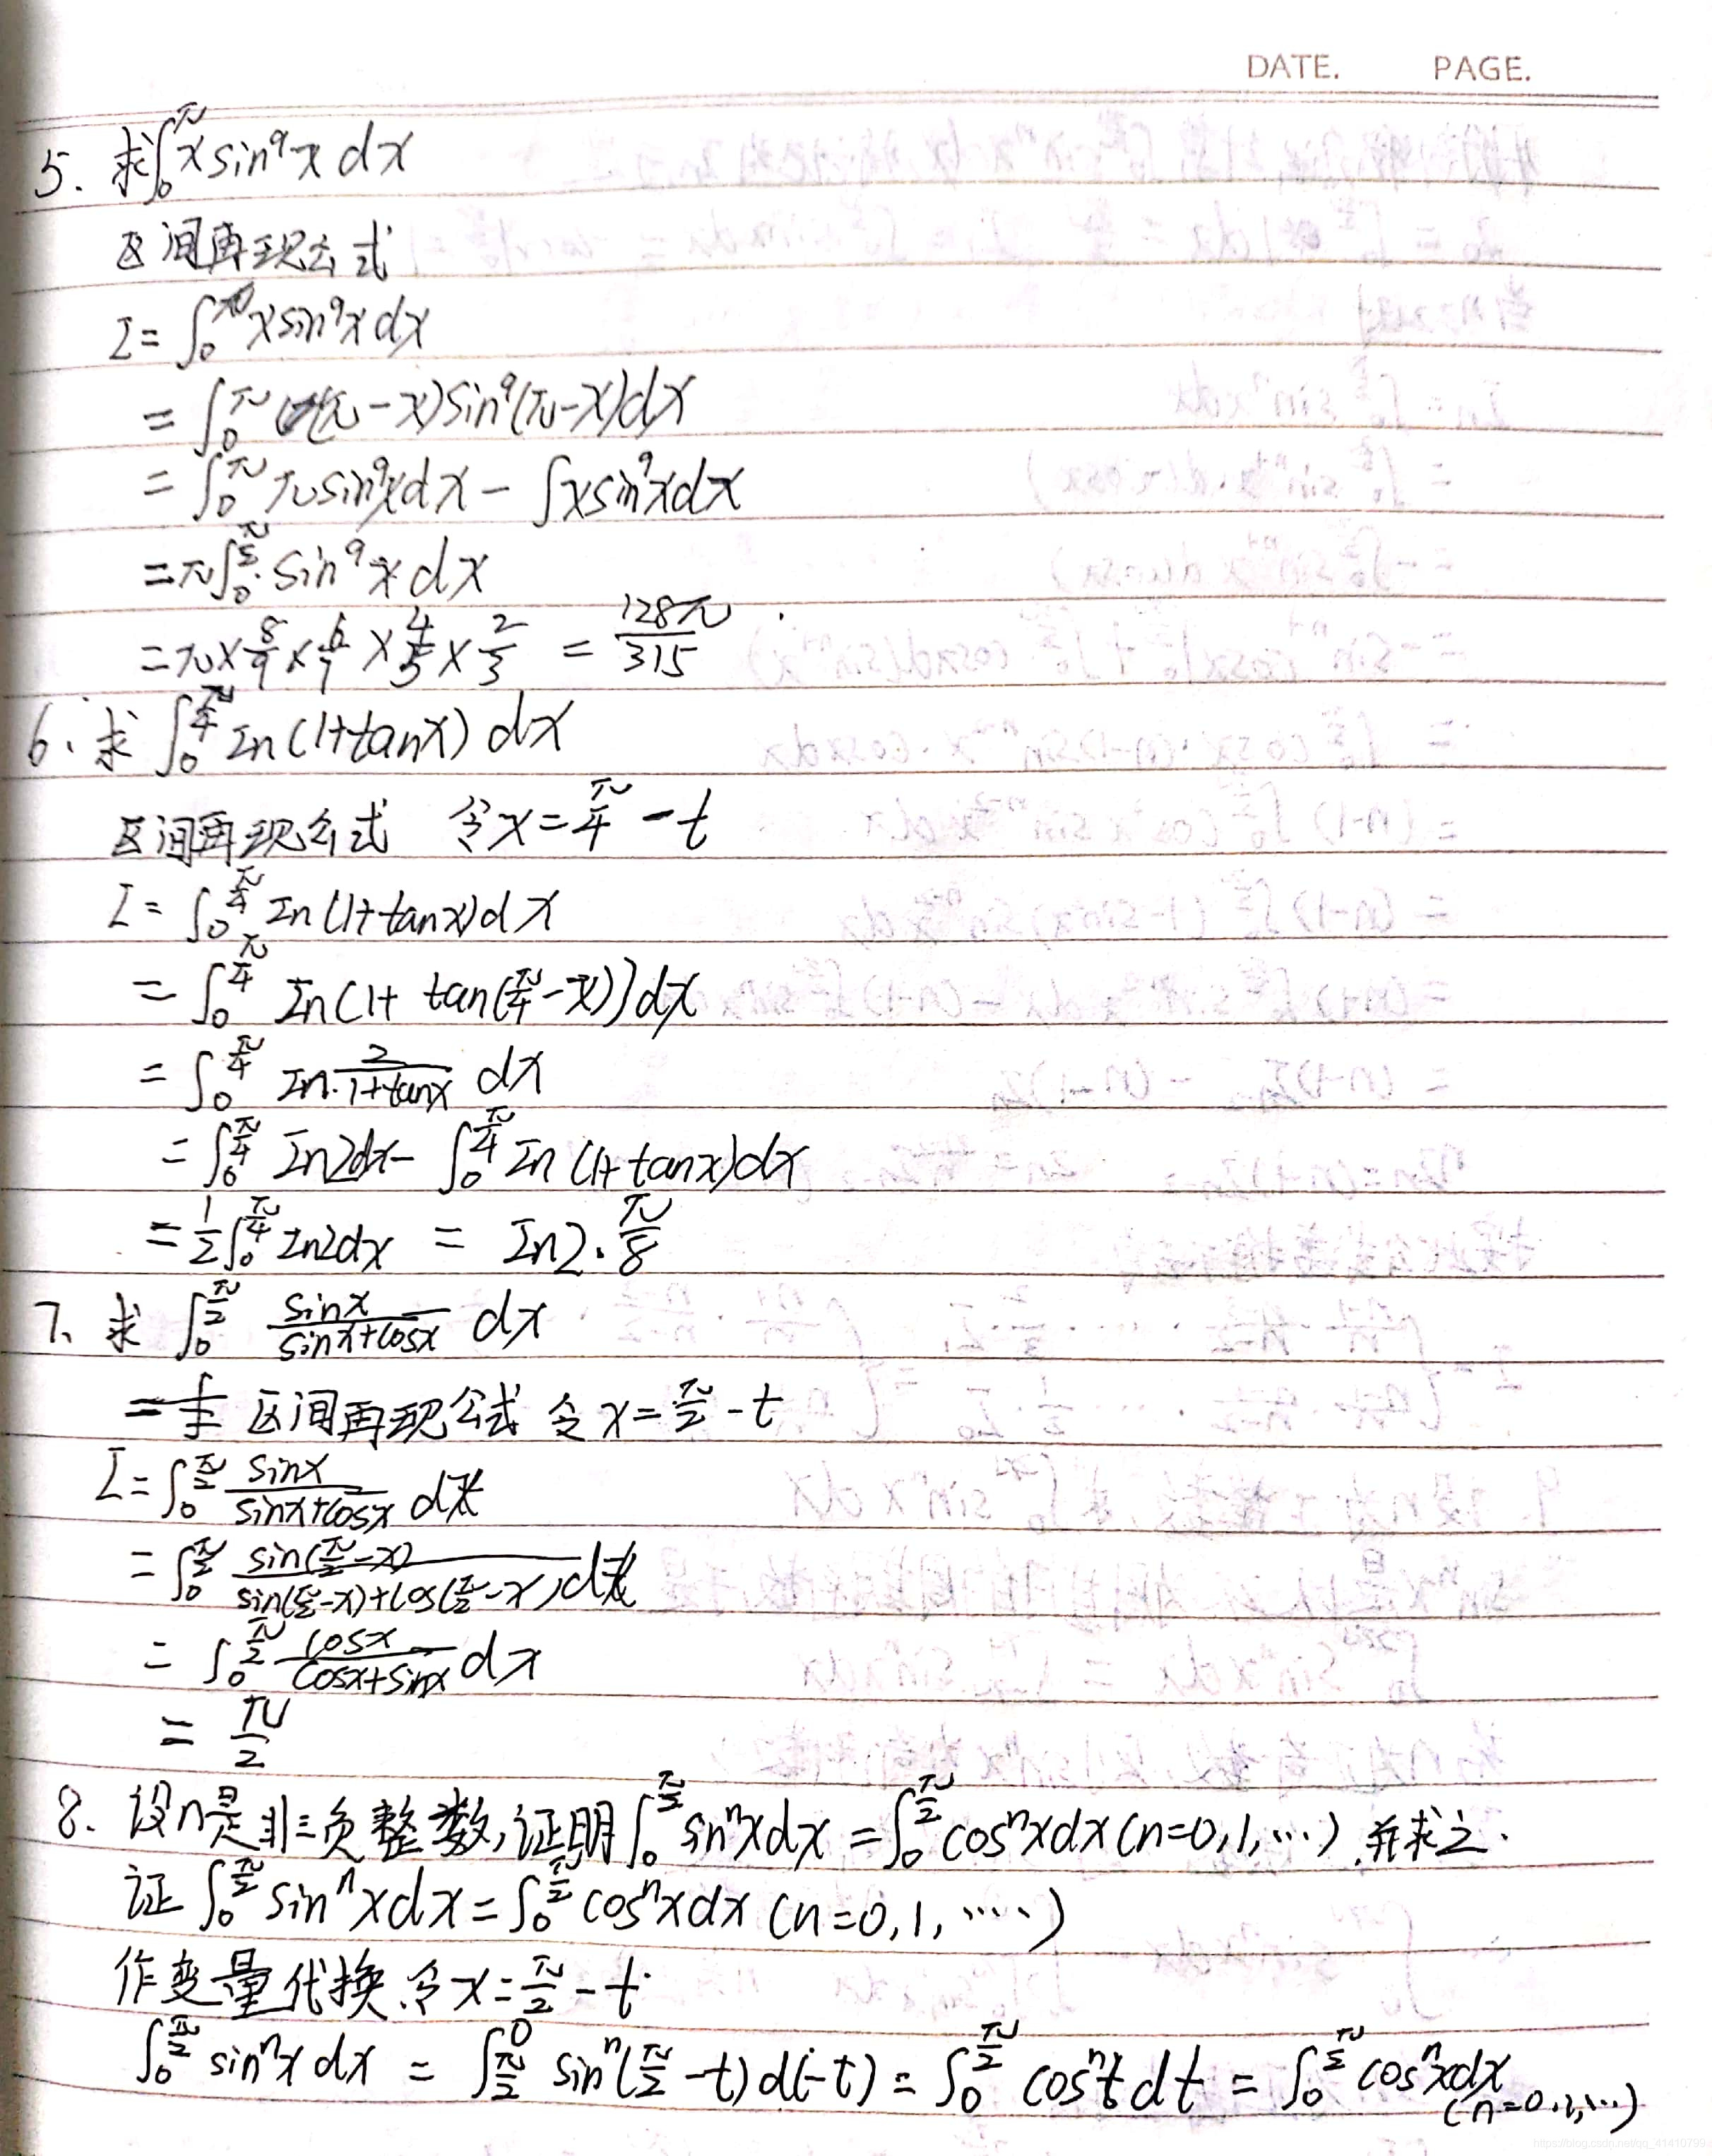 DATE. PAGE.
5. 求∫₀^π x sin⁹x dx
区间再现公式
I = ∫₀^π x sin⁹x dx
= ∫₀^π (π-x) sin⁹(π-x) dx
= ∫₀^π π sin⁹x dx - ∫x sin⁹x dx
= π∫₀^(π/2) · sin⁹x dx
= π × 8/9 × 6/7 × 4/5 × 2/3 = 128π/315
6. 求 ∫₀^(π/4) In(1+tanx) dx
区间再现公式 令x = π/4 - t
I = ∫₀^(π/4) In(1+tanx) dx
= ∫₀^(π/4) In(1+ tan(π/4 - x)) dx
= ∫₀^(π/4) In · 2/(1+tanx) dx
= ∫₀^(π/4) In2dx - ∫₀^(π/4) In(1+tanx)dx
= 1/2 ∫₀^(π/4) In2dx = In2 · π/8
7. 求 ∫₀^(π/2) sinx/(sinx+cosx) dx
= 区间再现公式 令x = π/2 - t
I = ∫₀^(π/2) sinx/(sinx+cosx) dx
= ∫₀^(π/2) sin(π/2-x)/(sin(π/2-x)+cos(π/2-x)) dx
= ∫₀^(π/2) cosx/(cosx+sinx) dx
= π/2
8. 设n是非负整数,证明∫₀^(π/2) sinⁿxdx = ∫₀^(π/2) cosⁿxdx (n=0,1,…) 并求之.
证 ∫₀^(π/2) sinⁿxdx = ∫₀^(π/2) cosⁿxdx (n=0,1,……)
作变量代换.令x = π/2 - t
∫₀^(π/2) sinⁿx dx = ∫_(π/2)^0 sinⁿ(π/2 - t) d(-t) = ∫₀^(π/2) cosⁿt dt = ∫₀^(π/2) cosⁿxdx
(n=0,1,…)
https://blog.csdn.net/qq_41410799